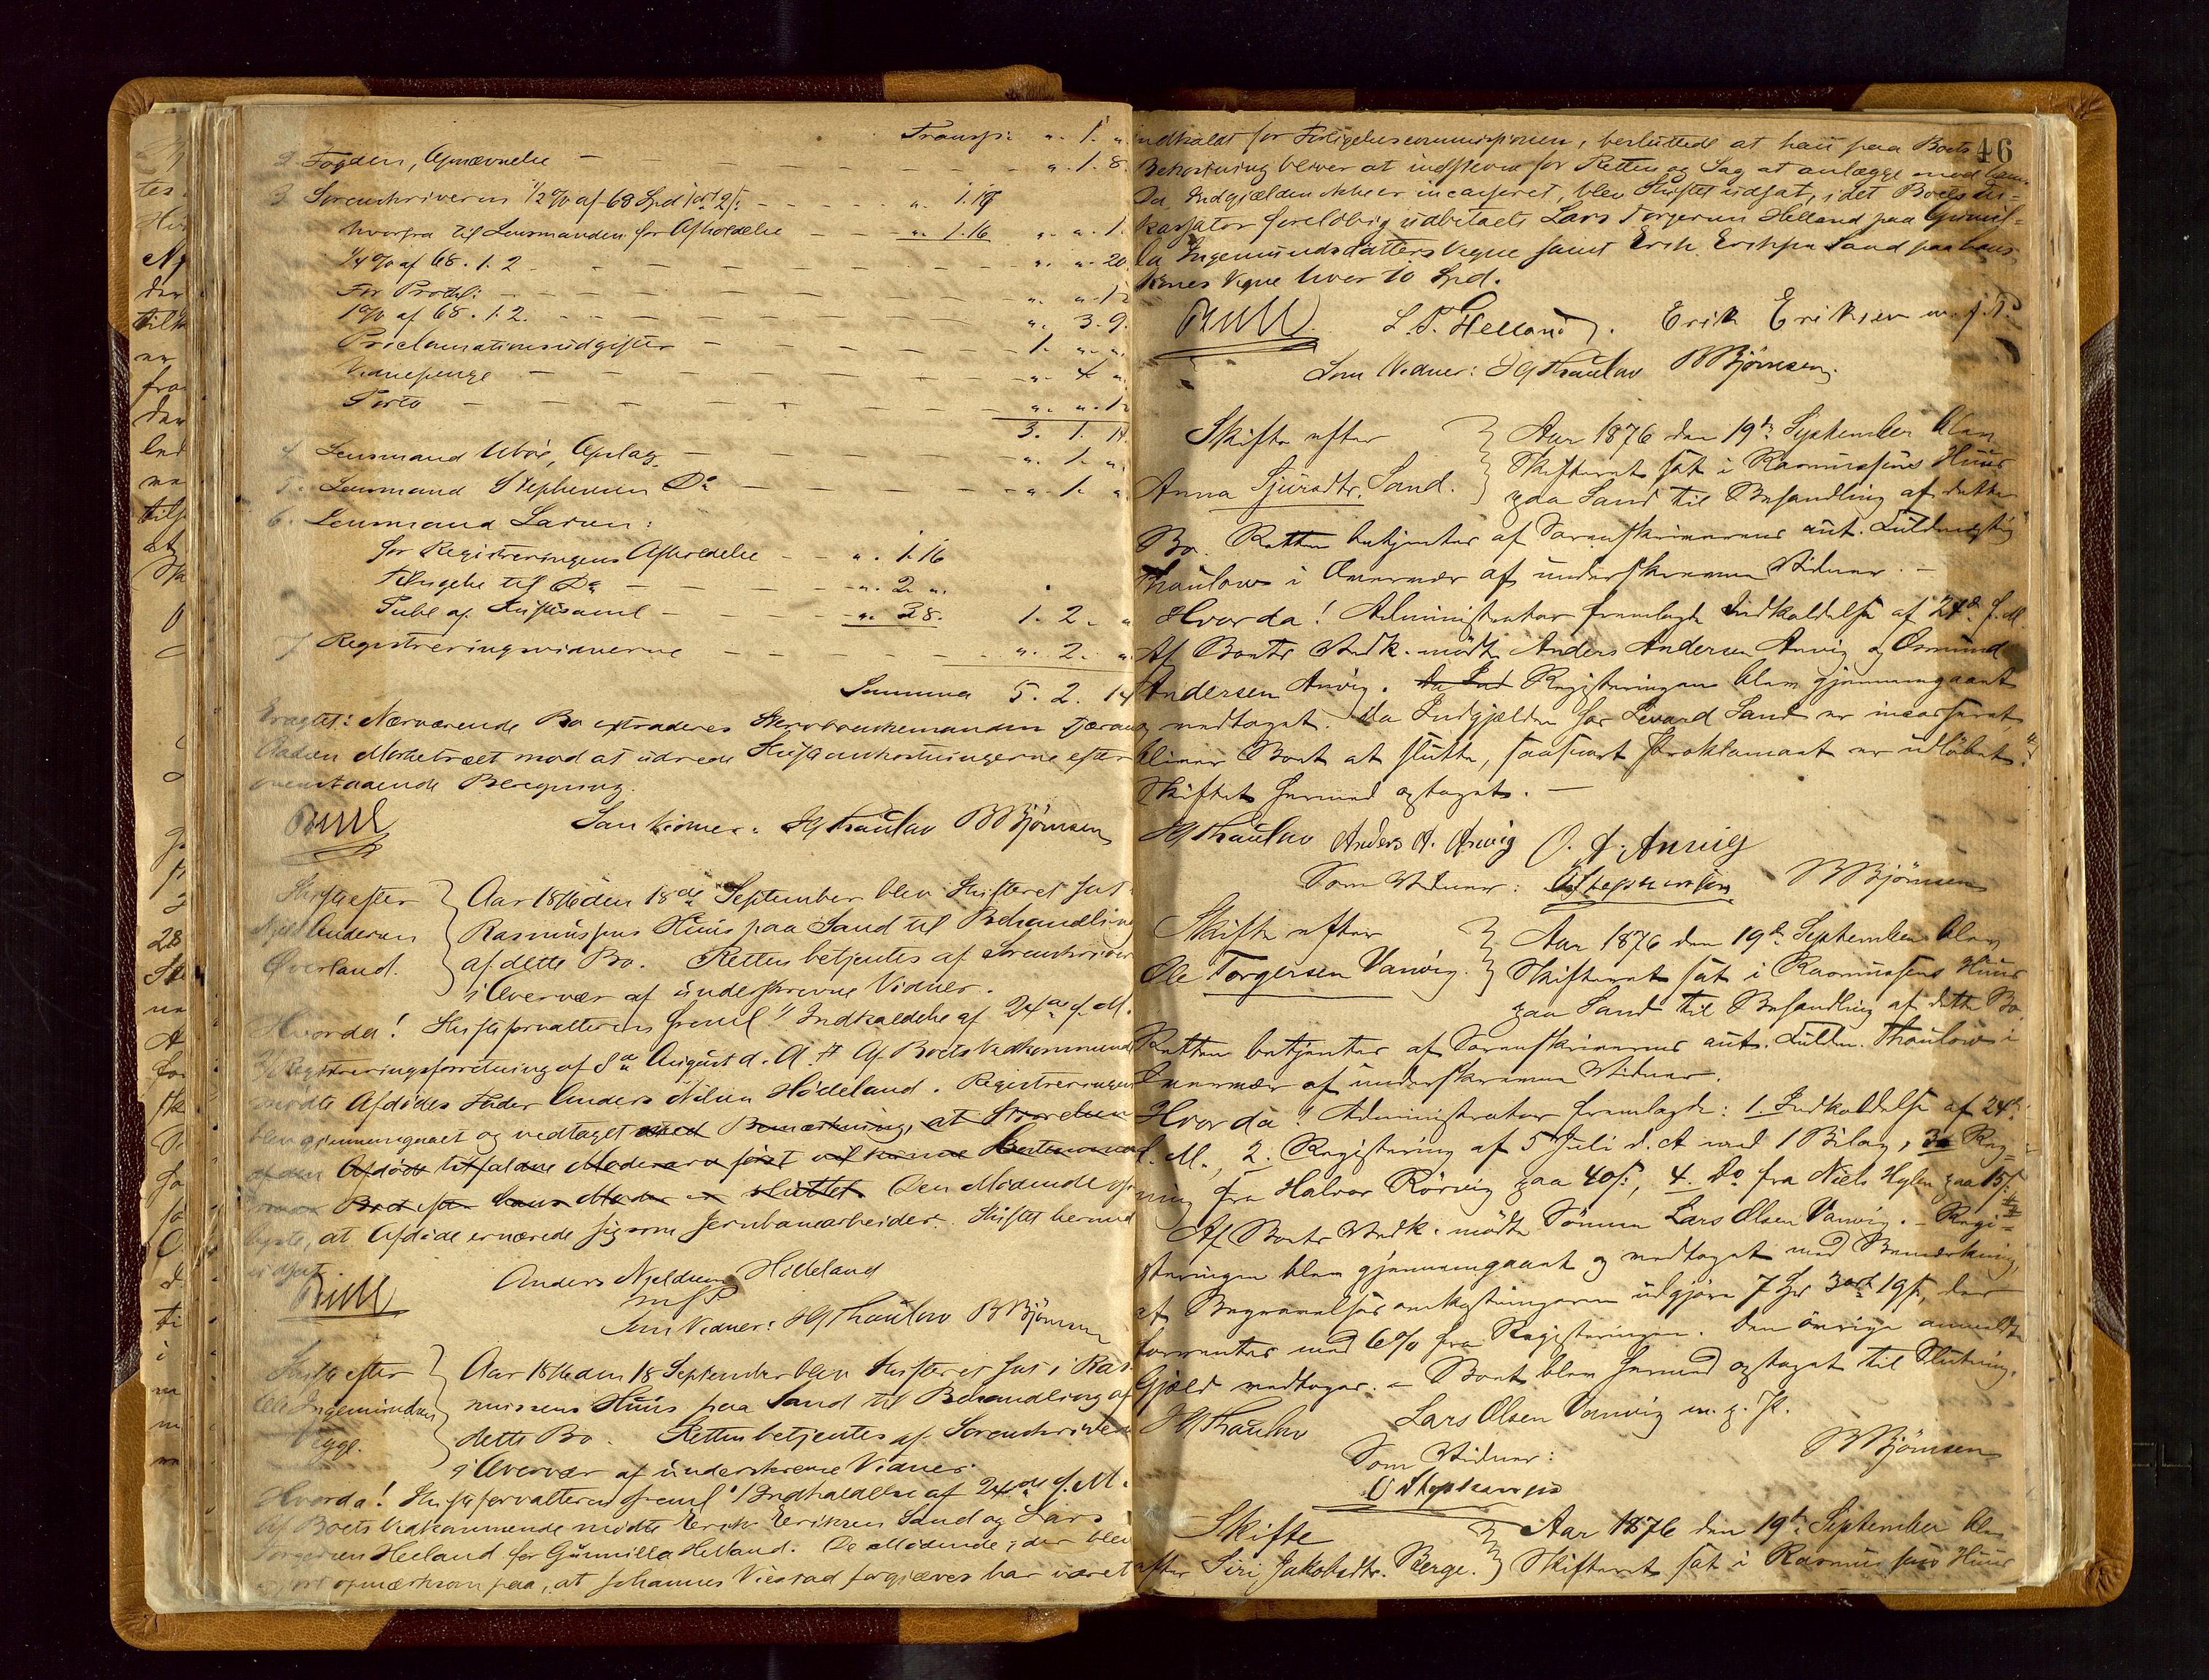 Transp: „ 1. „
2. Fogden, Opnævnelse — „ 1. 8.
3. Sorenskriveren 1/2 % af 68 Spd 1 ort 2 s: — „ 1.18
hvorfra til Lensmanden for Afholdelse — „ 1.16 „ „ 1.
1/4 % af 68. 1. 2 — „ „ 20.
For Protkl: — „ „ 12
1 % af 68. 1. 2. — „ 3. 9.
Proclamationsudgifter — 1. „ „
Vidnepenge — „ 4 „
Porto — „ „ 12
3. 1. 14.
4. Lensmand Uboe, Opslag — „ 1. „
5. Lensmand Stephensen Do — „ 1. „
6. Lensmand Larsen:
for Registreringens Afholdelse — „ 1.16
Tilsigelse til Do — „ 2 „
Publ. af Skiftesaml — „ 3 8. 1. 2. „
7. Registreringsvidnerne — „ 2. „
Summa 5. 2. 14
Eragtet: Nærværende Bo extraderes
Aadsen mod at udrede Skifteomkostningerne efter
ovenstaaende Beregning.
Som Vidner: HG Thaulow B Bjørnsen
Skifte efter
Njeld Andersen
Øverland.
Aar 1876 den 18de September blev Skifteret sat i
Rasmussens Huus paa Sand til Behandling
af dette Bo. Retten betjentes af Sorenskriveren
i Overvær af underskrevne Vidner.
Hvorda! Skifteforvalteren freml. 1) Indkaldelse af 24de f. M.
2) Registreringsforretning af 8de August d. A. Af Boets Vedkommende
mødte Afdødes Fader Anders Nilsen Hideland. Registreringen
blev gjennemgaaet og vedtaget med Bemærkning, at Størrelsen
af den Afdøde tilfaldne Mødrearv først vil kunne bestemmes
Boet efter hans Moder er sluttet. Den Mødende op-
lyste, at Afdøde ernærede sig som Jernbanearbeider. Skiftet hermed
udsat.
Anders Njeldsen Hilleland
m f P
Som Vidner: HG Thaulow B Bjørnsen
Skifte efter
Ole Ingemundsen
Tygge.
Aar 1876 den 18 September blev Skifteret sat i Ras-
mussens Huus paa Sand til Behandling af
dette Bo. Retten betjentes af Sorenskriveren
i Overvær af underskrevne Vidner.
Hvorda! Skifteforvalteren freml. 1) Indkaldelse af 24de f. M.
Af Boets Vedkommende mødte Erik Eriksen Sand og Lars
Torgersen Helland for Gunnilla Helland. De Mødende, der blev
gjort opmærksom paa, at Johannes Viestad forgjæves har været
46
indkaldt for Forligelsescommissionen, besluttede at han paa Boets
Bekostning bliver at indstevne for Retten og Sag at anlægge mod ham.
Da Indgjælden ikke er incasseret, blev Skiftet udsat, idet Boets In-
kassator foreløbig udbetaler Lars Torgersen Helland paa Gunnil-
la Ingemundsdatters Vegne samt Erik Eriksen Sand paa hans
Kones Vegne hver 10 Spd.
L. T. Helland. Erik Eriksen m. f. P.
Som Vidner: HG Thaulow B Bjørnsen.
Skifte efter
Anna Sjursdtr. Sand.
Aar 1876 den 19de September blev
Skifteret sat i Rasmussens Huus
paa Sand til Behandling af dette
Bo. Retten betjentes af Sorenskriverens aut. Fuldmægtig
Thaulow i Overvær af underskrevne Vidner. —
Hvorda! Administrator fremlagde Indkaldelse af 24de f. M.
Af Boets Vedk. mødte Anders Andersen Anvig og Osmund
Andersen Anvig. Da Ind Registreringen blev gjennemgaaet
og vedtaget. Da Indgjælden hos Sevard Sand er incasseret,
bliver Boet at slutte, saasnart Proklamaet er udløbet.
Skiftet hermed optaget. —
HG Thaulow Anders A. Anvig O. A. Anvig
Som Vidner: O Stephensen B Bjørnsen
Skifte efter
Ole Torgersen Vanvig.
Aar 1876 den 19de September blev
Skifteret sat i Rasmussens Huus
paa Sand til Behandling af dette Bo.
Retten betjentes af Sorenskriverens aut. Fuldm. Thaulow i
Overvær af underskrevne Vidner.
Hvorda! Administrator fremlagde: 1. Indkaldelse af 24de
f. M., 2. Registrering af 5 Juli d. A. med 1 Bilag, 3. Reg-
ning fra Halvor Rørvig paa 40 s:, 4. Do fra Niels Hylen paa 15 s:
Af Boets Vedk. mødte Sønnen Lars Olsen Vanvig. — Regi-
streringen blev gjennemgaaet og vedtaget med Bemærkning,
at Begravelsesomkostningerne udgjøre 7 Spd 3 ort 19 s, der
forrentes med 6 % fra Registreringen. Den øvrige anmeldte
Gjæld vedtoges. — Boet blev hermed optaget til Slutning.
HG Thaulow Lars Olsen Vanvig m. p. P.
Som Vidner: B Bjørnsen
O Stephensen
Skifte
efter Siri Jakobsdtr. Berge.
Aar 1876 den 19de September blev
Skifteret sat i Rasmussens Huus